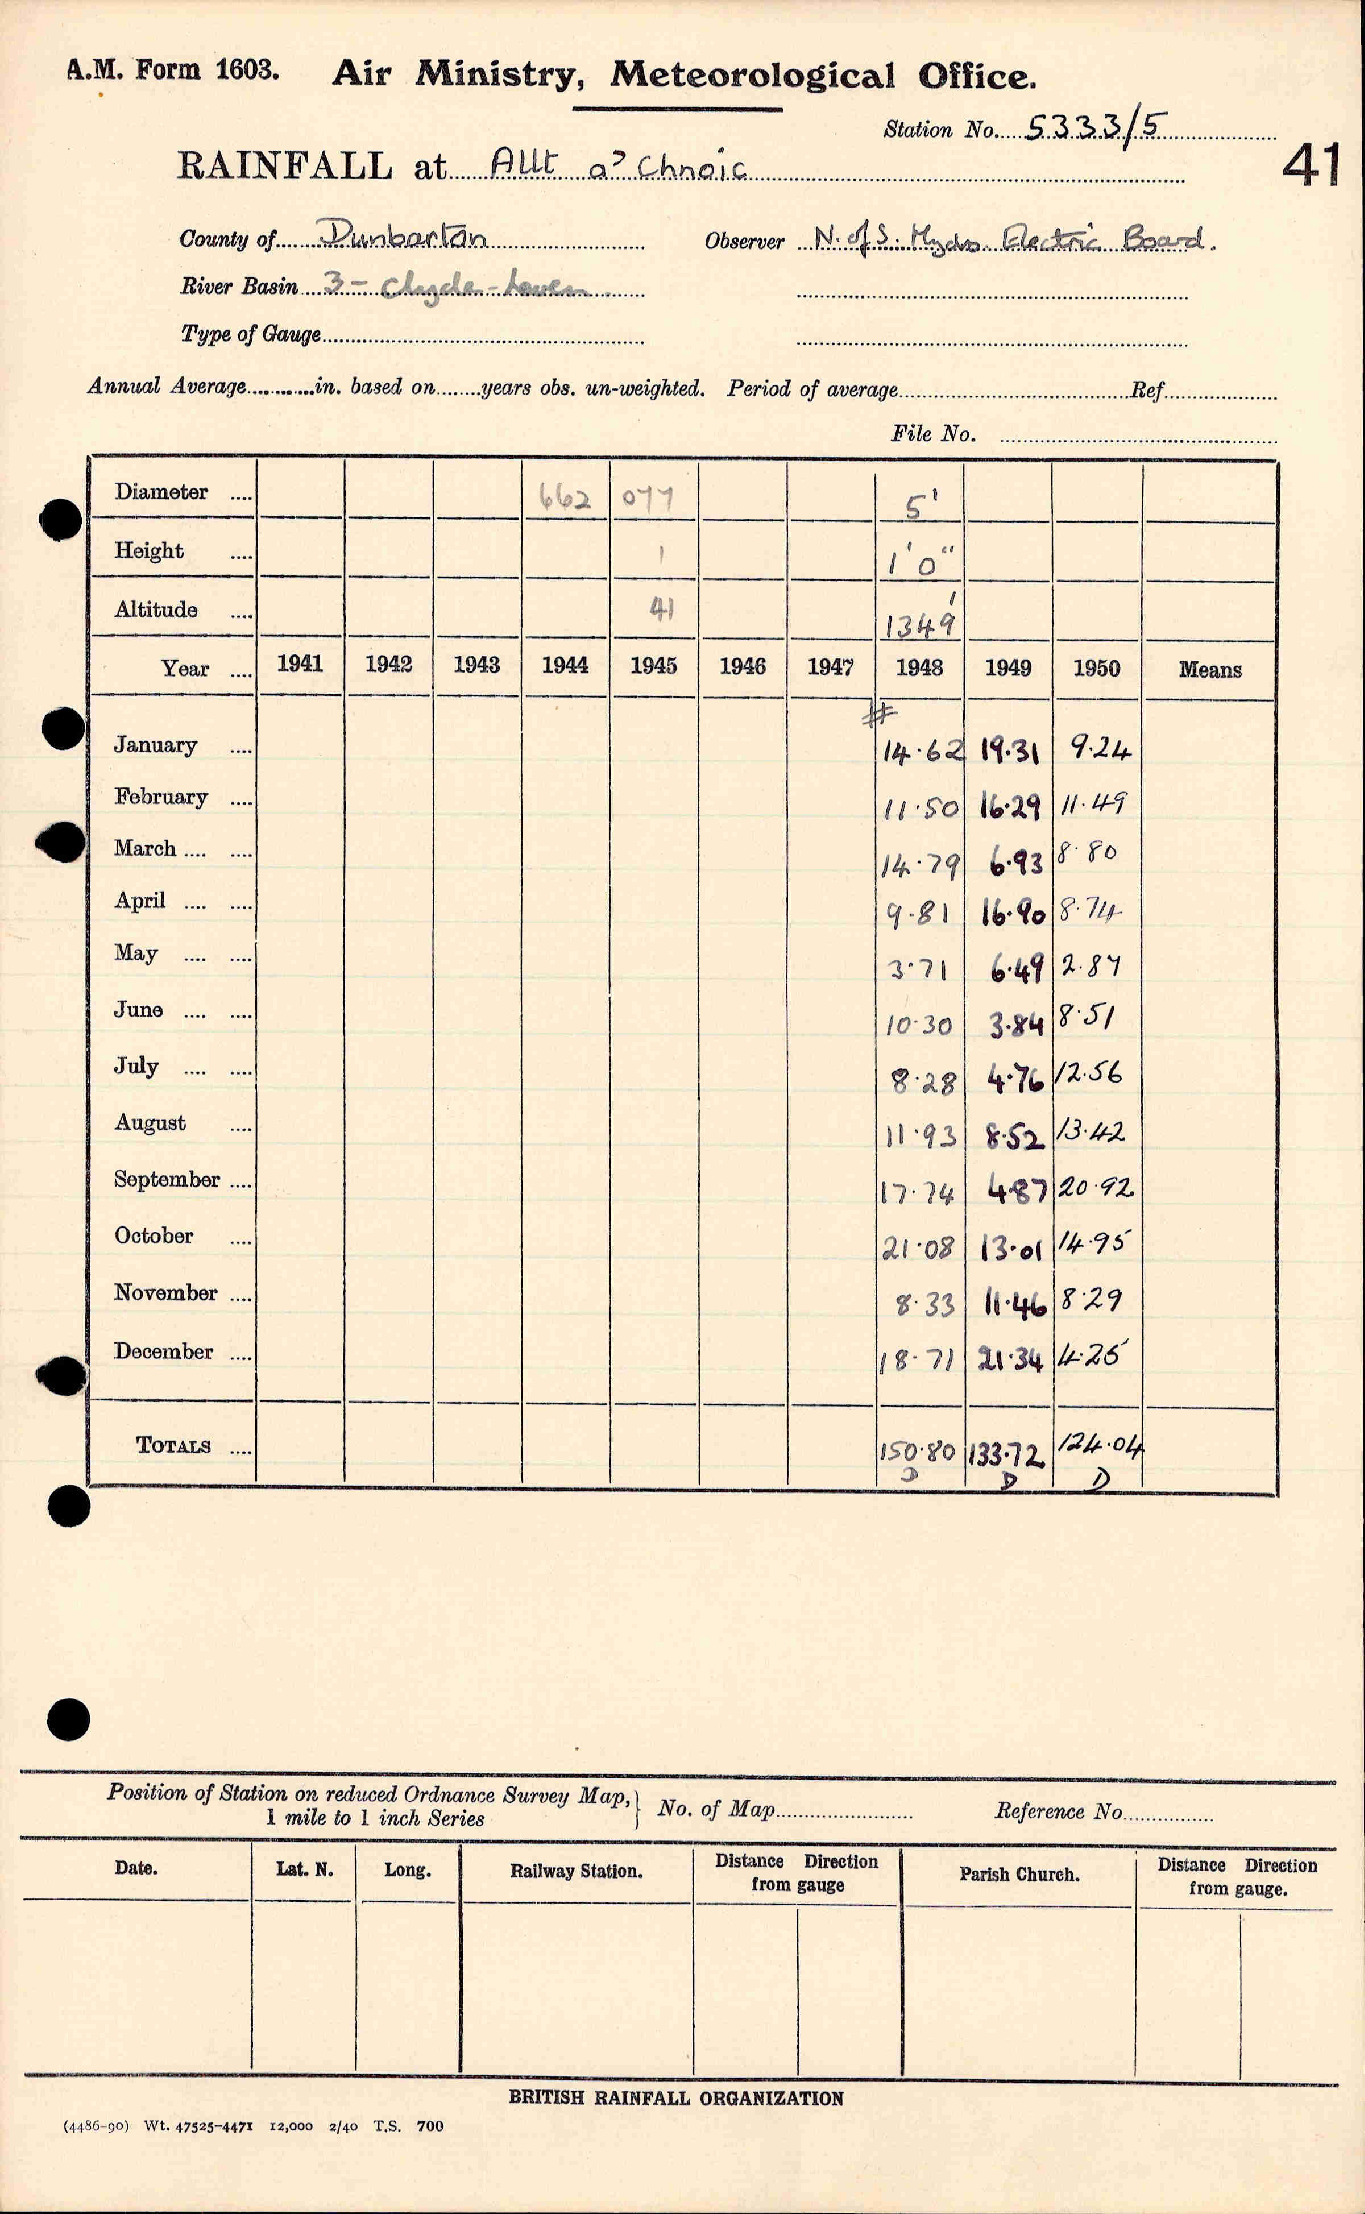 A.M. Form 1603. Air Ministry, Meteorological Office.
Station No. 5333/5
41
RAINFALL at Allt a' Chnoic
County of Dunbarton Observer N. of S. Hydro Electric Board.
River Basin 3 - Clyde - Leven
Type of Gauge
Annual Average in. based on years obs. un-weighted. Period of average Ref.
File No.
Diameter .... 662 077 5'
Height .... 1 1'0"
Altitude .... 41 1349'
Year .... 1941 1942 1943 1944 1945 1946 1947 1948 1949 1950 Means
#
January .... 14.62 19.31 9.24
February .... 11.50 16.29 11.49
March .... .... 14.79 6.93 8.80
April .... .... 9.81 16.90 8.74
May .... .... 3.71 6.49 2.87
June .... .... 10.30 3.84 8.51
July .... .... 8.28 4.76 12.56
August .... 11.93 8.52 13.42
September .... 17.74 4.87 20.92
October .... 21.08 13.01 14.95
November .... 8.33 11.46 8.29
December .... 18.71 21.34 4.25
TOTALS .... 150.80 133.72 124.04
D D D
Position of Station on reduced Ordnance Survey Map, } No. of Map Reference No.
1 mile to 1 inch Series
Date. Lat. N. Long. Railway Station. Distance Direction from gauge Parish Church. Distance Direction from gauge.
BRITISH RAINFALL ORGANIZATION
(4486-90) Wt. 47525-4471 12,000 2/40 T.S. 700